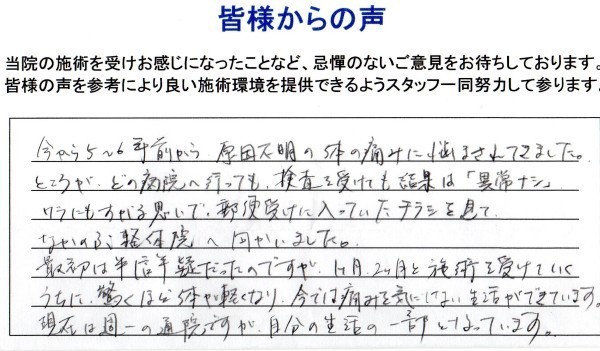 皆様からの声
当院の施術を受けお感じになったことなど、忌憚のないご意見をお待ちしております。
皆様の声を参考により良い施術環境を提供できるようスタッフ一同努力して参ります。
今から5〜6年前から 原因不明の体の痛みに悩まされてきました。
ところが、どの病院へ行っても、検査を受けても結果は「異常ナシ」。
ワラにもすがる思いで、郵便受けに入っていたチラシを見て、
整体院へ向かいました。
最初は半信半疑だったのですが、1ヶ月、2ヶ月と施術を受けていく
うちに、驚くほど体が軽くなり、今では痛みを気にしない生活ができています。
現在は週一の通院ですが、自分の生活の一部となっています。